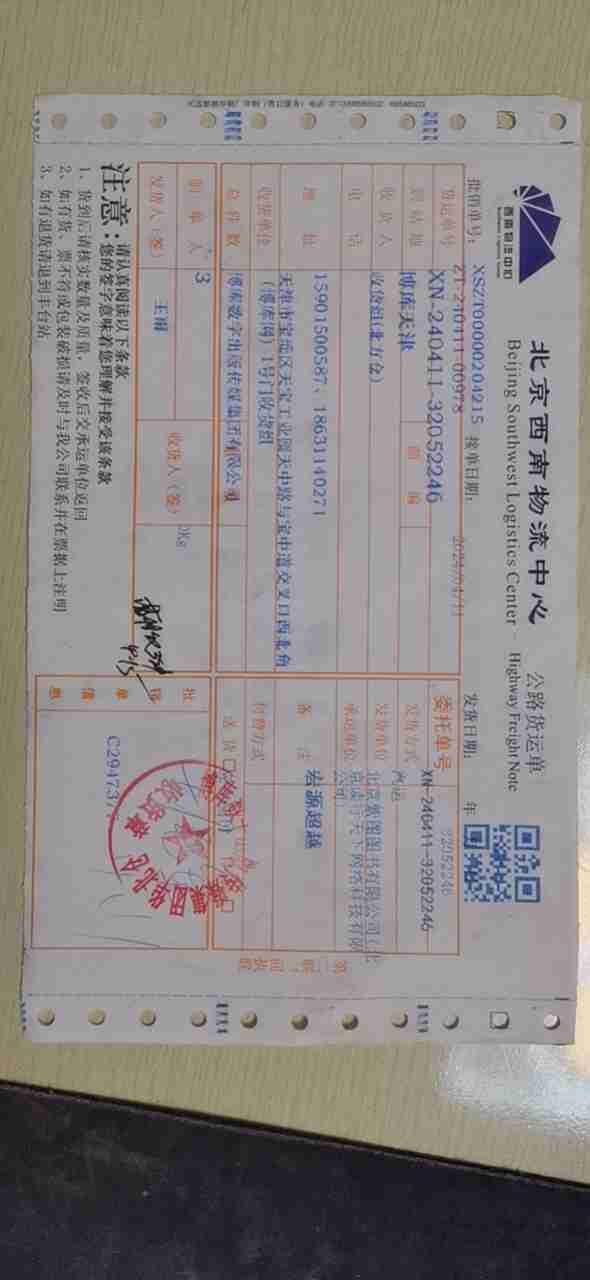 北京西南物流中心
公路货运单
Beijing Southwest Logistics Center
Highway Freight Note
西南物流中心
批销单号: XSZT00000204215 接单日期: 2024/04/11 发货日期: 年
货运单号 ZT-240411-00978
XN-240411-32052246
委托单号 32052246
XN-240411-32052246
到站地 博库天津
发货方式 汽运
收货人 收货组(北方仓)
发货单位 北京紫图图书有限公司(北
京读行天下网络科技有限
公司)
电话 15901500587、18631140271
承运单位
地址 天津市宝坻区天宝工业园天中路与宝中道交叉口西北角
(博库网)1号门收货组
备注 宏源超越
收货单位 博库数字出版传媒集团有限公司
付费方式
总件数 3
送货
制单人 王丽
发货人(签)
收货人(签)
批销单信息
C294737
第二联:回执联
注意:
请认真阅读以下条款
您的签字意味着您理解并接受该条款
1、货到后请核实数量及质量,签收后交承运单位返回
2、如有货、票不符或包装破损请及时与我公司联系并在票据上注明
3、如有退货请退到丰台站